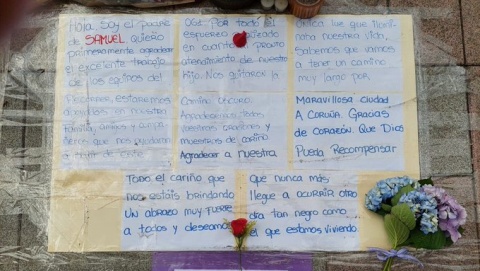 Hola, Soy el padre
de SAMUEL. Quiero
primeramente agradecer
el excelente trabajo
de los equipos del
OGS. Por todo el
esfuerzo
en cuanto pronto
atendimiento de nuestro
hijo. Nos quitaron la
única luz que
nuestra vida,
Sabemos que vamos
a tener un camino
muy largo por
Recorrer, estaremos
en nuestra
familia, amigos y
que nos ayudaran
a
Camino oscuro.
Agradecemos todas
vuestras oraciones y
muestras de cariño
Agradecer a nuestra
Maravillosa ciudad
A Coruña. Gracias
de corazón. Que Dios
Pueda Recompensar
Todo el cariño que
nos estáis brindando
Un abrazo muy fuerte
a todos y deseamos
que nunca más
llegue a ocurrir otro
día tan negro como
el que estamos viviendo